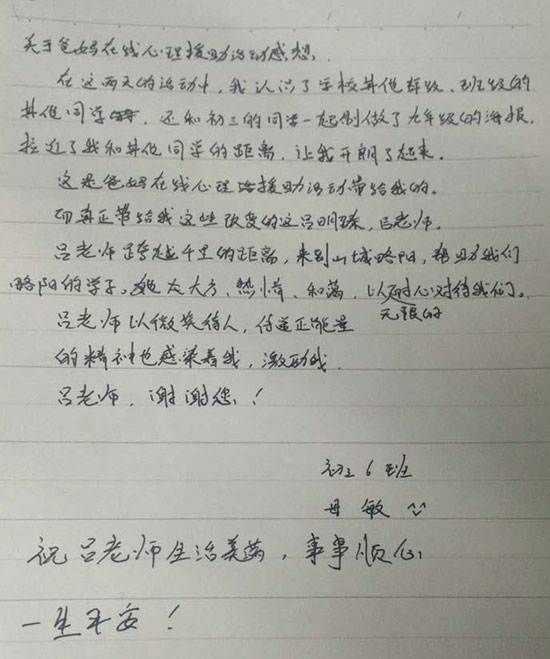 关于爸妈在线心理援助活动感想.
在这两天的活动中,我认识了学校其他年级、班级的
其他同学,还和初三的同学一起制做了九年级的海报.
拉近了我和其他同学的距离,让我开朗了起来.
这是爸妈在线心理援助活动带给我的.
而真正带给我这些改变的这吕明臻,吕老师.
吕老师跨越千里的距离,来到山城略阳,帮助我们
略阳的学子。她太大方、热情、和蔼,以耐心对待我们。
无限的
吕老师以微笑待人,传递正能量
的精神也感染着我,激励我.
吕老师,谢谢您!
初三6班
母敏
祝吕老师生活美满,事事顺心,
一生平安!